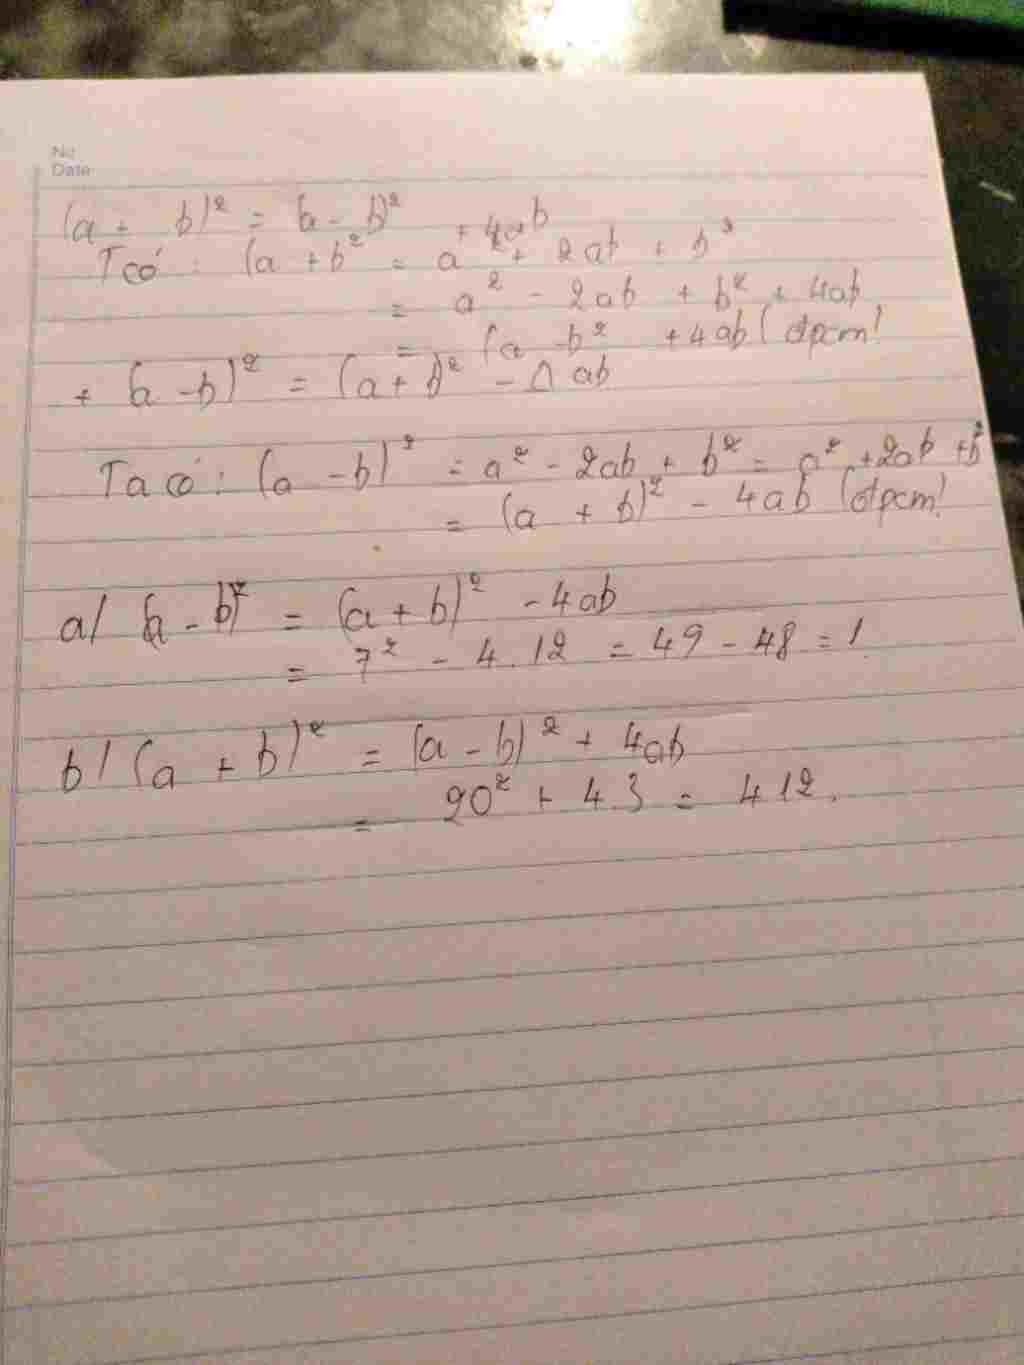 No
Date
(a + b)² = (a - b)² + 4ab
T có: (a + b² = a² + 2ab + b²
= a² - 2ab + b² + 4ab
= (a - b² + 4ab (đpcm!
+ (a - b)² = (a + b)² - 4ab
Ta có: (a - b)² = a² - 2ab + b² = a² + 2ab + b²
= (a + b)² - 4ab (đpcm!
a/ (a - b)² = (a + b)² - 4ab
= 7² - 4.12 = 49 - 48 = 1.
b/ (a + b)² = (a - b)² + 4ab
= 20² + 4.3 = 412.